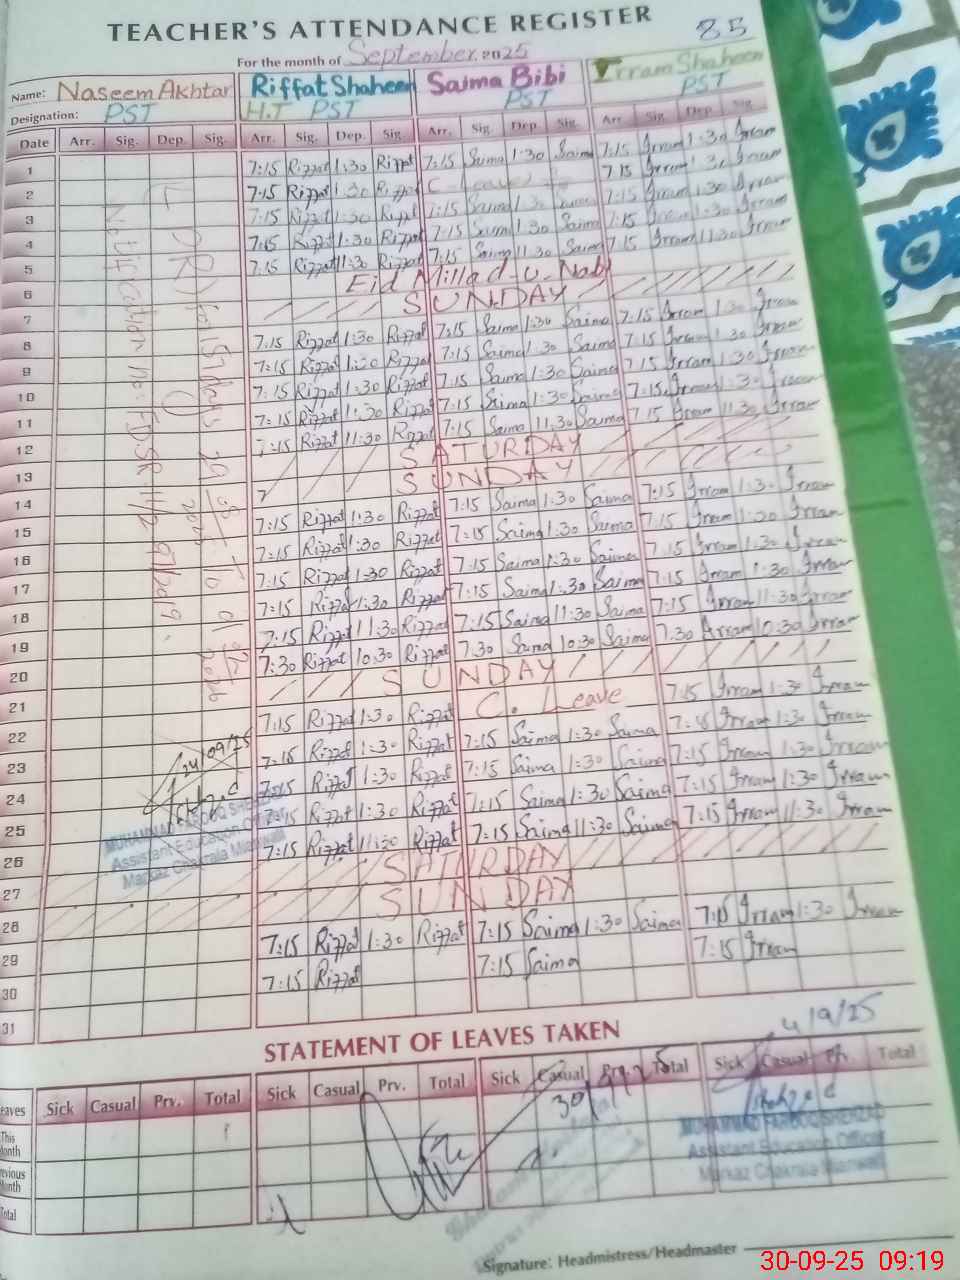 TEACHER'S ATTENDANCE REGISTER
85
For the month of September 2025
Name: Naseem Akhtar Riffat Shaheen Saima Bibi Irram Shaheen
Designation: PST H.T PST PST PST
Date Arr. Sig. Dep. Sig. Arr. Sig. Dep. Sig. Arr. Sig. Dep. Sig. Arr. Sig. Dep. Sig.
1 7:15 Riffat 1:30 Riffat 7:15 Saima 1:30 Saima 7:15 Irram 1:30 Irram
2 7:15 Riffat 1:30 Riffat C. Leave 7:15 Irram 1:30 Irram
3 7:15 Riffat 1:30 Riffat 7:15 Saima 1:30 Saima 7:15 Irram 1:30 Irram
4 7:15 Riffat 1:30 Riffat 7:15 Saima 1:30 Saima 7:15 Irram 1:30 Irram
5 7:15 Riffat 11:30 Riffat 7:15 Saima 11:30 Saima 7:15 Irram 11:30 Irram
6 Eid Millad-u-Nabi
7 SUNDAY
8 7:15 Riffat 1:30 Riffat 7:15 Saima 1:30 Saima 7:15 Irram 1:30 Irram
9 7:15 Riffat 1:30 Riffat 7:15 Saima 1:30 Saima 7:15 Irram 1:30 Irram
10 7:15 Riffat 1:30 Riffat 7:15 Saima 1:30 Saima 7:15 Irram 1:30 Irram
11 7:15 Riffat 1:30 Riffat 7:15 Saima 1:30 Saima 7:15 Irram 1:30 Irram
12 7:15 Riffat 11:30 Riffat 7:15 Saima 11:30 Saima 7:15 Irram 11:30 Irram
13 SATURDAY
14 SUNDAY
15 7:15 Riffat 1:30 Riffat 7:15 Saima 1:30 Saima 7:15 Irram 1:30 Irram
16 7:15 Riffat 1:30 Riffat 7:15 Saima 1:30 Saima 7:15 Irram 1:30 Irram
17 7:15 Riffat 1:30 Riffat 7:15 Saima 1:30 Saima 7:15 Irram 1:30 Irram
18 7:15 Riffat 1:30 Riffat 7:15 Saima 1:30 Saima 7:15 Irram 1:30 Irram
19 7:15 Riffat 11:30 Riffat 7:15 Saima 11:30 Saima 7:15 Irram 11:30 Irram
20 7:30 Riffat 10:30 Riffat 7:30 Saima 10:30 Saima 7:30 Irram 10:30 Irram
21 SUNDAY
22 7:15 Riffat 1:30 Riffat C. Leave 7:15 Irram 1:30 Irram
23 7:15 Riffat 1:30 Riffat 7:15 Saima 1:30 Saima 7:15 Irram 1:30 Irram
24 7:15 Riffat 1:30 Riffat 7:15 Saima 1:30 Saima 7:15 Irram 1:30 Irram
25 7:15 Riffat 1:30 Riffat 7:15 Saima 1:30 Saima 7:15 Irram 1:30 Irram
26 7:15 Riffat 11:30 Riffat 7:15 Saima 11:30 Saima 7:15 Irram 11:30 Irram
27 SATURDAY
28 SUNDAY
29 7:15 Riffat 1:30 Riffat 7:15 Saima 1:30 Saima 7:15 Irram 1:30 Irram
30 7:15 Riffat 7:15 Saima 7:15 Irram
31
Notification no:
24/09/25
MUHAMMAD FAROOQ SHEHZAD
Assistant Education Officer
Markaz Chakrala Mianwali
STATEMENT OF LEAVES TAKEN
Leaves Sick Casual Prv. Total Sick Casual Prv. Total Sick Casual Prv. Total Sick Casual Prv. Total
This Month
Previous Month
Total
MUHAMMAD FAROOQ SHEHZAD
Assistant Education Officer
Markaz Chakrala Mianwali
Signature: Headmistress/Headmaster
30-09-25 09:19